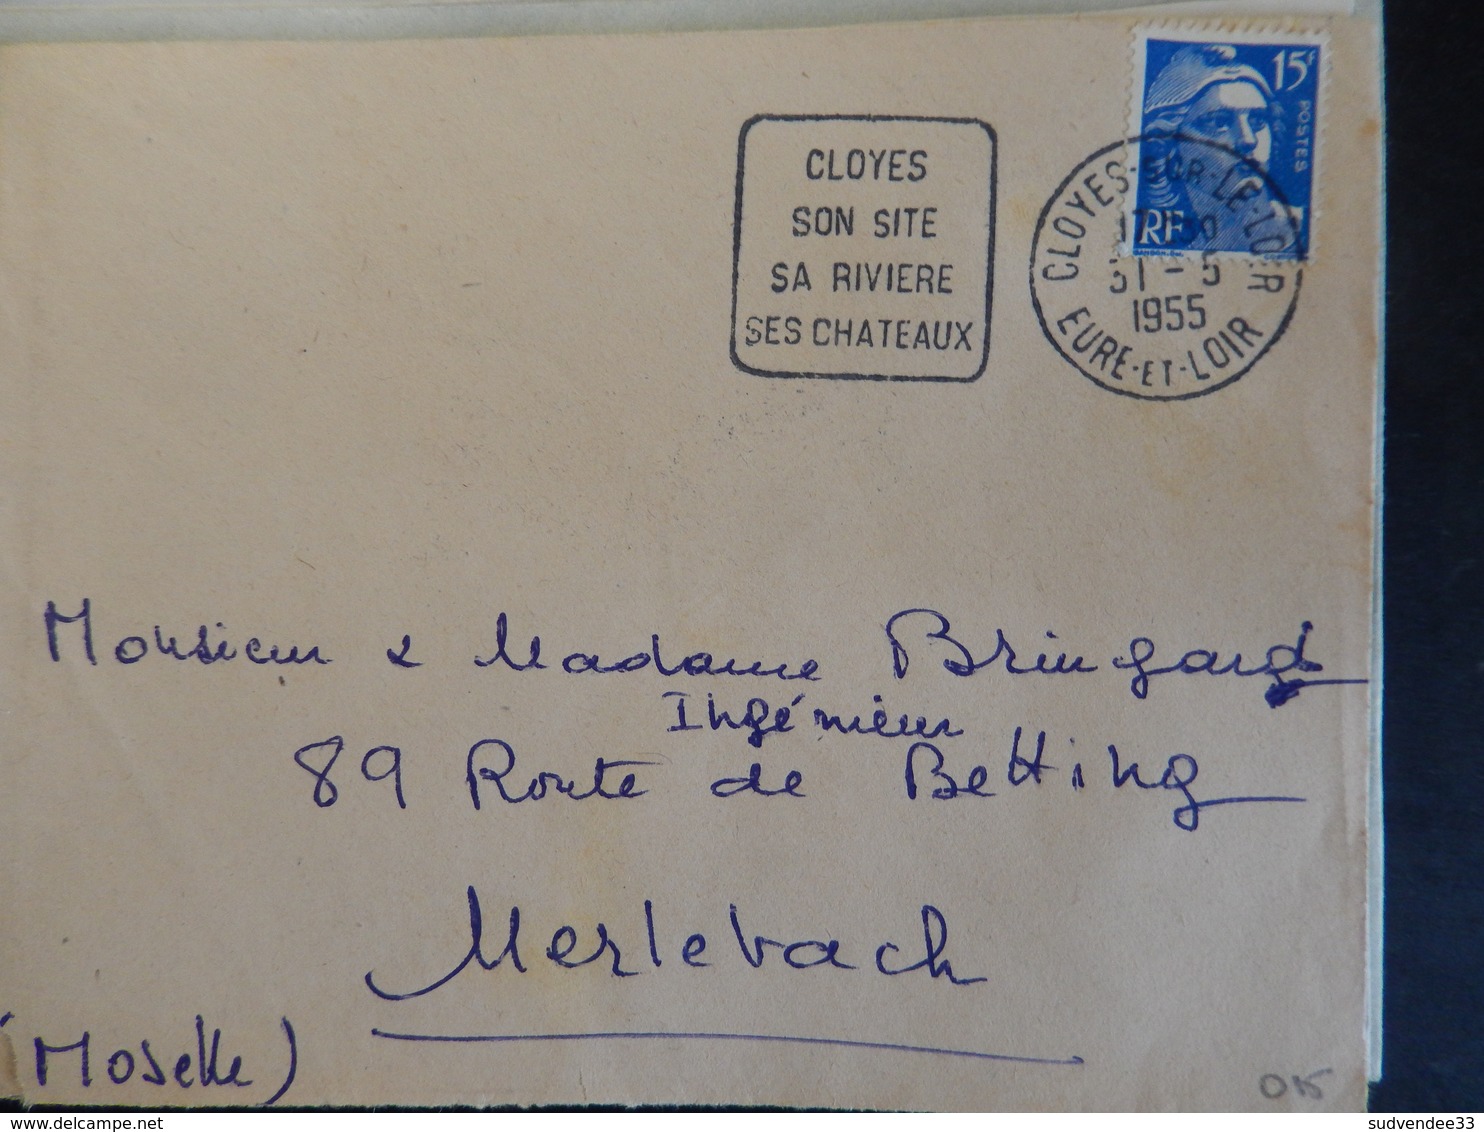 15F
POSTES
RF
CLOYES
SON SITE
SA RIVIERE
SES CHATEAUX
CLOYES-SUR-LE-LOIR
31 - 5
1955
EURE-ET-LOIR
Monsieur & Madame Bringard
Ingénieur
89 Route de Betting
Merlebach
(Moselle)
015
sudvendee33